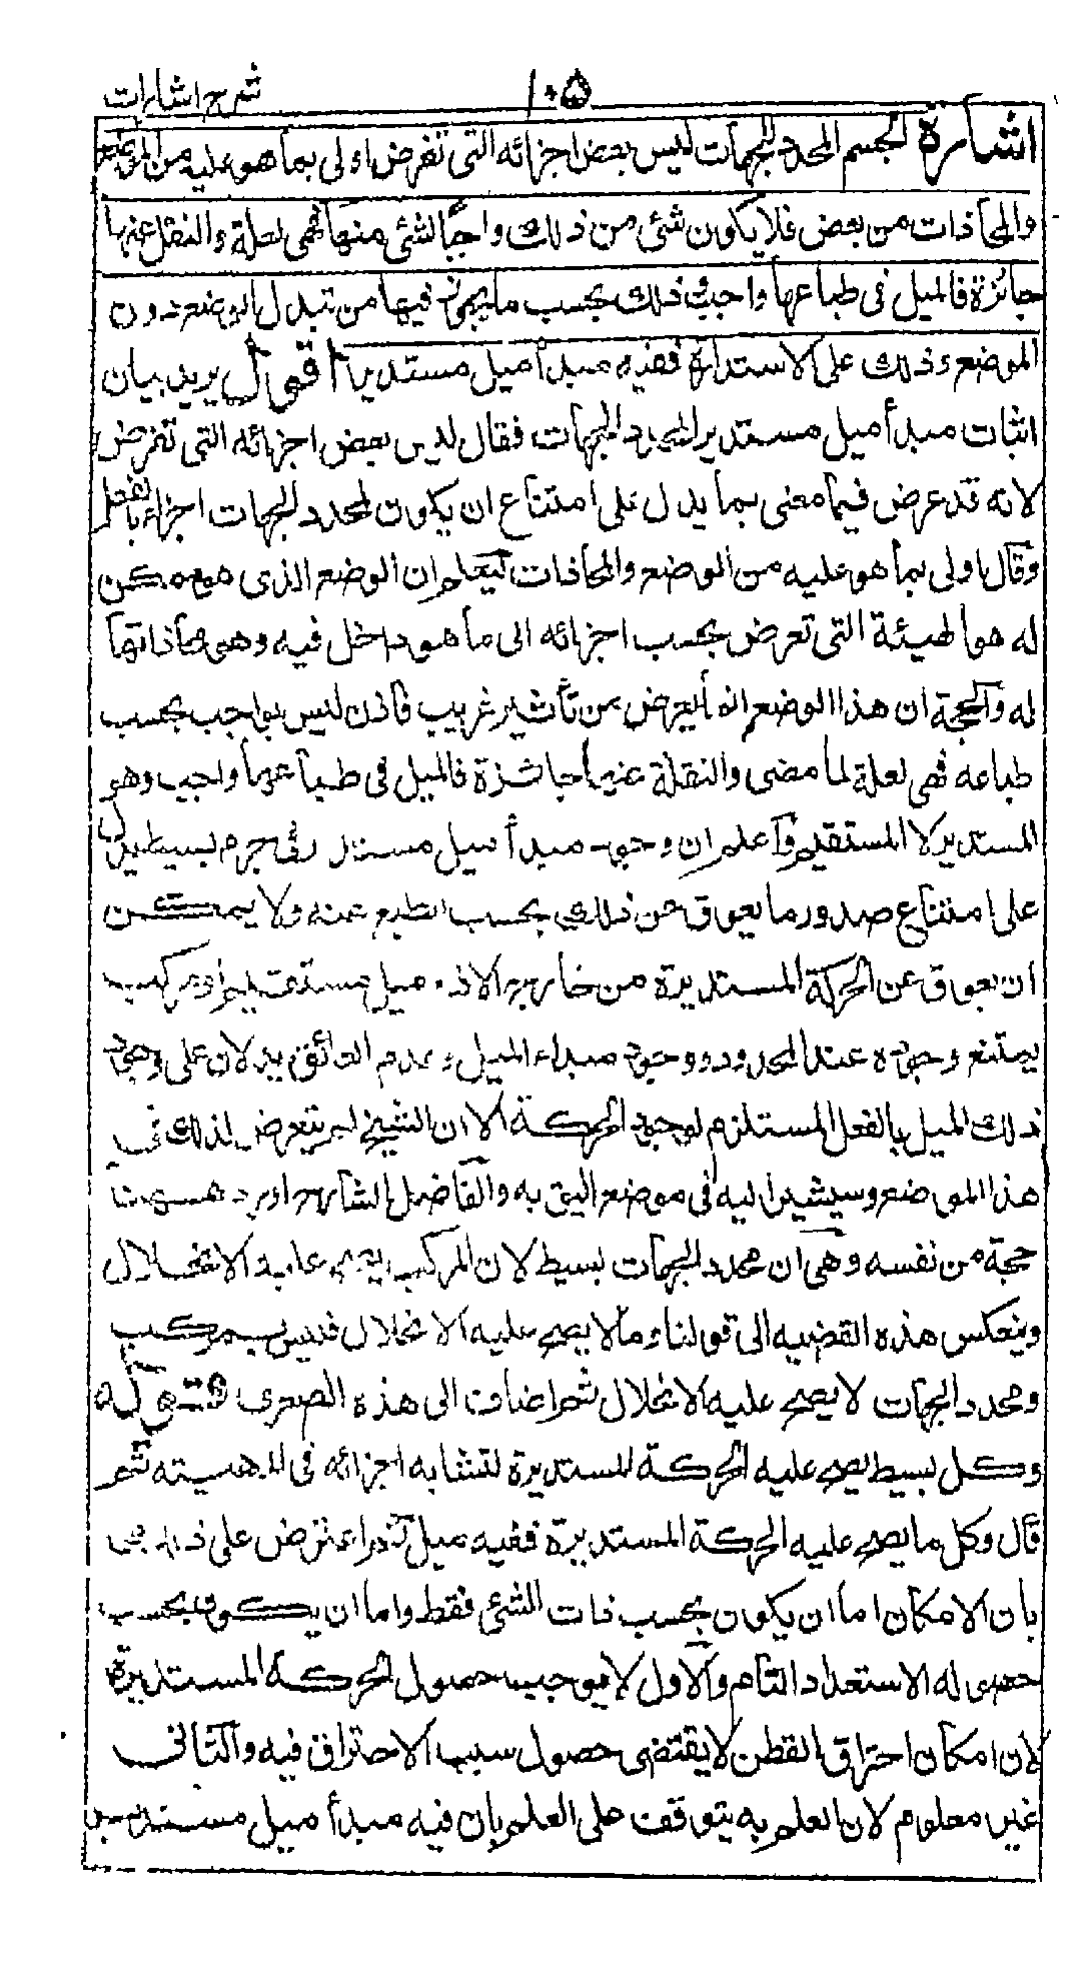 شرح اشارات ١٠٥
اشارة الجسم المحدد للجهات ليس بعض اجزائه التى تفرض اولى بما هو عليه من الوضع
والمحاذات من بعض فلا يكون شئ من ذلك واجبا لشئ منها فهى لعلة والنقل عنها
جائزة فالميل فى طباعها واجب وذلك بحسب ما يجوز فيها من تبدل الوضع دون
الموضع وذلك على الاستدارة ففيه مبدأ ميل مستدير اقول يريد بيان
اثبات مبدأ ميل مستدير لمحدد الجهات فقال ليس بعض اجزائه التى تفرض
لانه قد عرض فيما مضى بما يدل على امتناع ان يكون لمحدد الجهات اجزاء بالفعل
وقال اولى بما هو عليه من الوضع والمحاذات ليعلم ان الوضع الذى هو ممكن
له هو الهيئة التى تعرض بحسب اجزائه الى ما هو داخل فيه وهو محاذاتها
له والحجة ان هذا الوضع انما يعرض من تأثير غريب فاذن ليس بواجب بحسب
طباعه فهى لعلة لما مضى والنقلة عنها جائزة فالميل فى طباعها واجب وهو
المستدير لا المستقيم واعلم ان وجود مبدأ ميل مستدير فى جرم بسيط يدل
على امتناع صدور ما يعوق عن ذلك بحسب الطبع عنه ولا يمكن
ان يعوق عن الحركة المستديرة من خارج الا ذو ميل مستقيم او مركب
يمتنع وجوده عند المحدود ووجود مبداء الميل وعدم العائق يدلان على وجود
ذلك الميل بالفعل المستلزم لوجود الحركة الا ان الشيخ لم يتعرض لذلك فى
هذا الموضع وسيشير اليه فى موضع اليق به والفاضل الشارح اورد ههنا
حجة من نفسه وهى ان محدد الجهات بسيط لان المركب يصح عليه الانحلال
وينعكس هذه القضيه الى قولنا وما لا يصح عليه الانحلال فليس بمركب
ومحدد الجهات لا يصح عليه الانحلال ثم اضاف الى هذه الصغرى قوله
وكل بسيط يصح عليه الحركة المستديرة لتشابه اجزائه فى الماهيته ثم
قال وكل ما يصح عليه الحركة المستديرة ففيه ميل ثم اعترض على ذلك
بان الامكان اما ان يكون بحسب ذات الشئ فقط واما ان يكون بحسب
حصول الاستعداد التام والاول لا يوجب حصول الحركة المستديرة
لان امكان احتراق القطن لا يقتضى حصول سبب الاحتراق فيه والثانى
غير معلوم لان العلم به يتوقف على العلم بان فيه مبدأ ميل مستدير